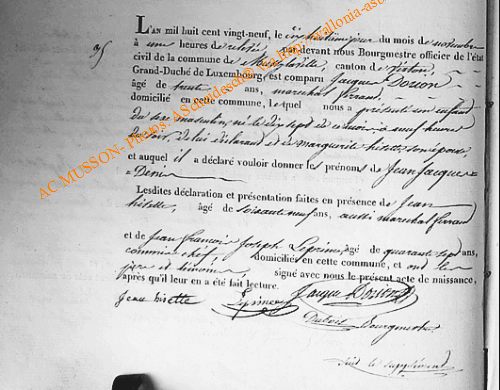 L'an mil huit cent vingt-neuf, le dix huitième jour du mois de novembre
à une heures de relevée par devant nous Bourgmestre officier de l'état
civil de la commune de canton de Virton
Grand-Duché de Luxembourg, est comparu Jacque Dozion
35
âgé de trente ans, marechal ferrand
domicilié en cette commune, lequel nous a présenté un enfant
du sexe masculin, né le dix sept de ce mois, à neuf heures
du soir, de lui déclarant et de marguerite hisette, son épouse,
et auquel il a déclaré vouloir donner les prénoms de Jean Jacques
Denis
Lesdites déclaration et présentation faites en présence de Jean
hisette, âgé de soixante neuf ans, aussi marechal ferrand
et de Jean françois Joseph Leprince, âgé de quarante sept ans,
commis chef, domiciliés en cette commune, et ont le
père et témoins signé avec nous le présent acte de naissance,
après qu'il leur en a été fait lecture.
jean hisette Leprince Jacque Dozion
Bourgmestre
suit le supplément
AC MUSSON- Photos: AS